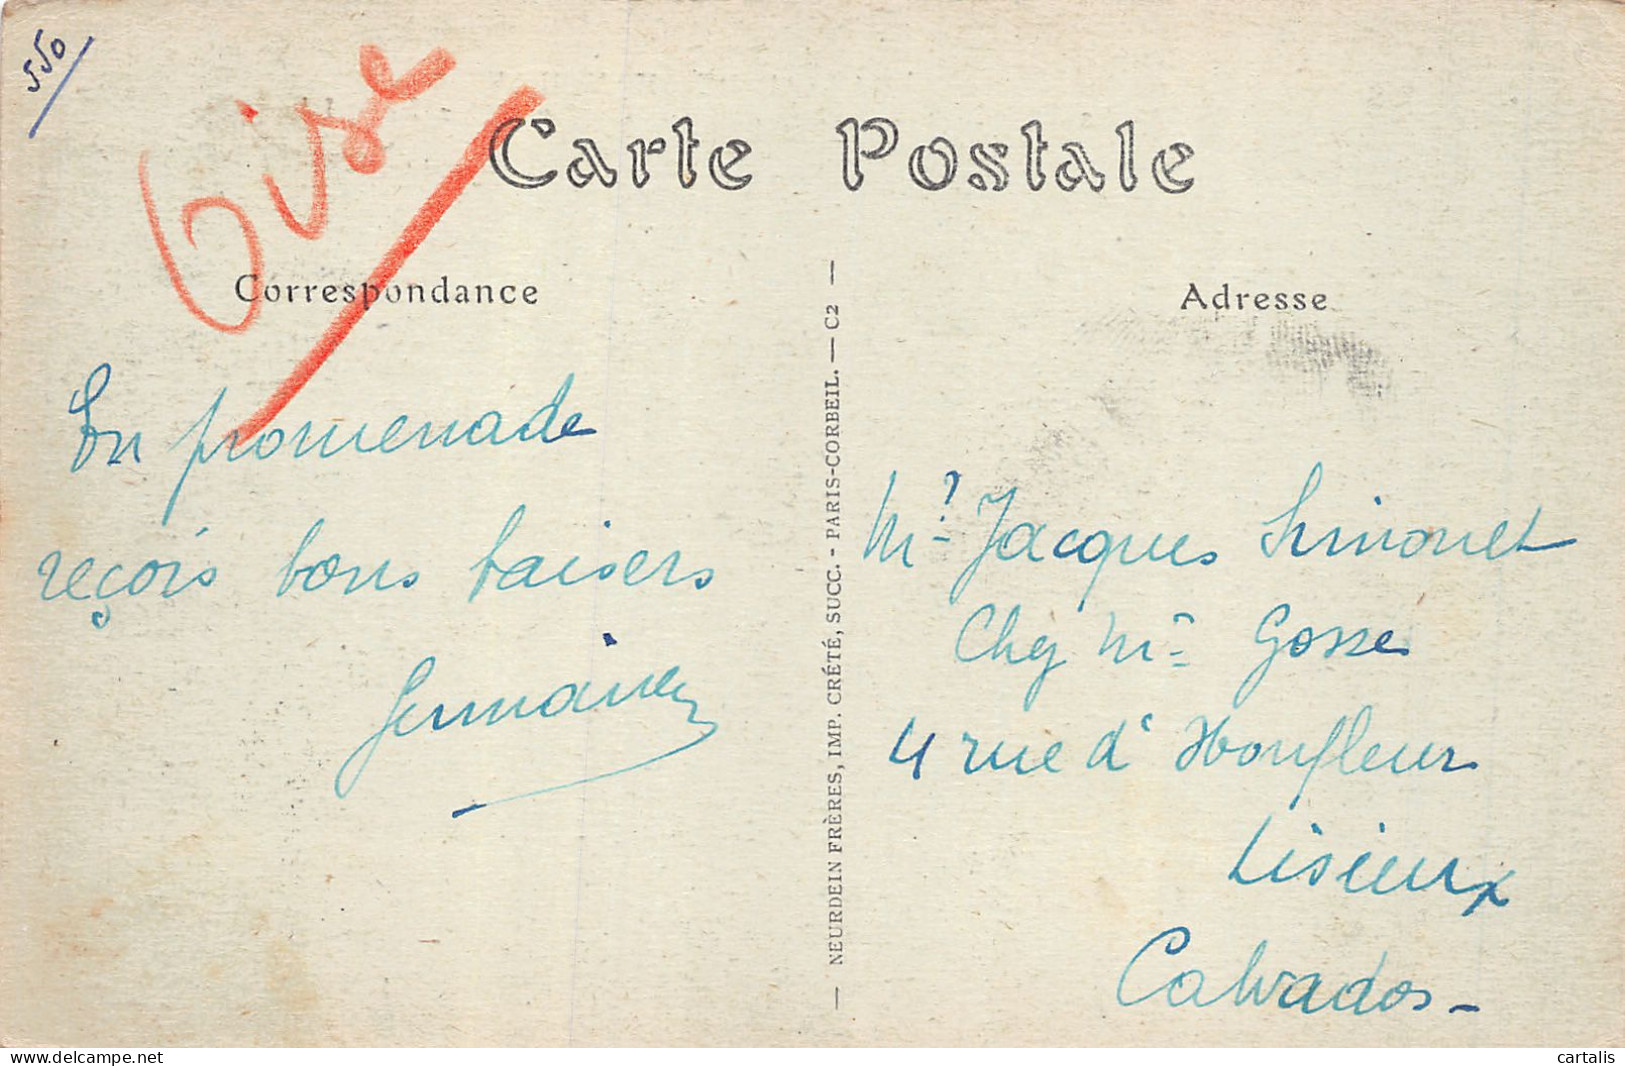 550
Oise
Carte Postale
Correspondance
En promenade
reçois bons baisers
Germaine
NEURDEIN FRÈRES, IMP. CRÉTÉ, SUCC. - PARIS-CORBEIL. — C2 —
Adresse
Mr Jacques Simonet
Chez Mr Gosse
4 rue d'Honfleur
Lisieux
Calvados -
delcampe.net
cartalis